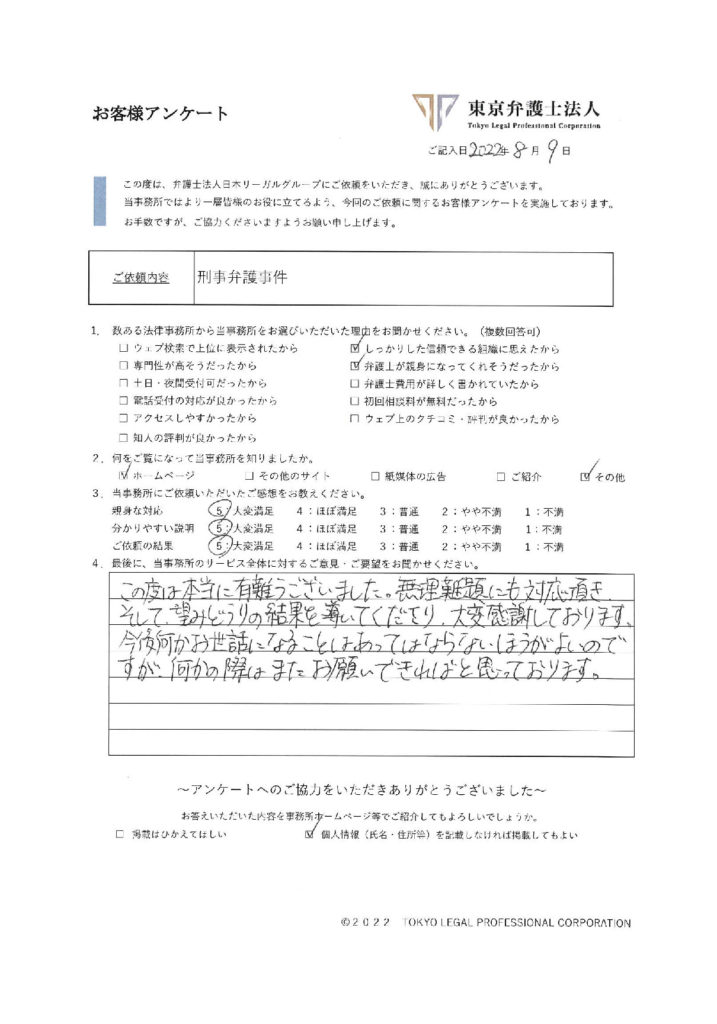 お客様アンケート
東京弁護士法人
Tokyo Legal Professional Corporation
ご記入日2022年8月9日
この度は、弁護士法人日本リーガルグループにご依頼をいただき、誠にありがとうございます。
当事務所ではより一層皆様のお役に立てるよう、今回のご依頼に関するお客様アンケートを実施しております。
お手数ですが、ご協力くださいますようお願い申し上げます。
ご依頼内容 刑事弁護事件
1. 数ある法律事務所から当事務所をお選びいただいた理由をお聞かせください。（複数回答可）
☐ ウェブ検索で上位に表示されたから ☑ しっかりした信頼できる組織に思えたから
☐ 専門性が高そうだったから ☑ 弁護士が親身になってくれそうだったから
☐ 土日・夜間受付可だったから ☐ 弁護士費用が詳しく書かれていたから
☐ 電話受付の対応が良かったから ☐ 初回相談料が無料だったから
☐ アクセスしやすかったから ☐ ウェブ上のクチコミ・評判が良かったから
☐ 知人の評判が良かったから
2. 何をご覧になって当事務所を知りましたか。
☑ ホームページ ☐ その他のサイト ☐ 紙媒体の広告 ☐ ご紹介 ☑ その他
3. 当事務所にご依頼いただいたご感想をお教えください。
親身な対応 5：大変満足 4：ほぼ満足 3：普通 2：やや不満 1：不満
分かりやすい説明 5：大変満足 4：ほぼ満足 3：普通 2：やや不満 1：不満
ご依頼の結果 5：大変満足 4：ほぼ満足 3：普通 2：やや不満 1：不満
4. 最後に、当事務所のサービス全体に対するご意見・ご要望をお聞かせください。
この度は本当に有難うございました。無理難題にも対応頂き、
そして、望みどうりの結果を導いてくださり、大変感謝しております。
今後何かお世話になることはあってはならないほうがよいので
すが、何かの際はまたお願いできればと思っております。
～アンケートへのご協力をいただきありがとうございました～
お答えいただいた内容を事務所ホームページ等でご紹介してもよろしいでしょうか。
☐ 掲載はひかえてほしい ☑ 個人情報（氏名・住所等）を記載しなければ掲載してもよい
©2022 TOKYO LEGAL PROFESSIONAL CORPORATION